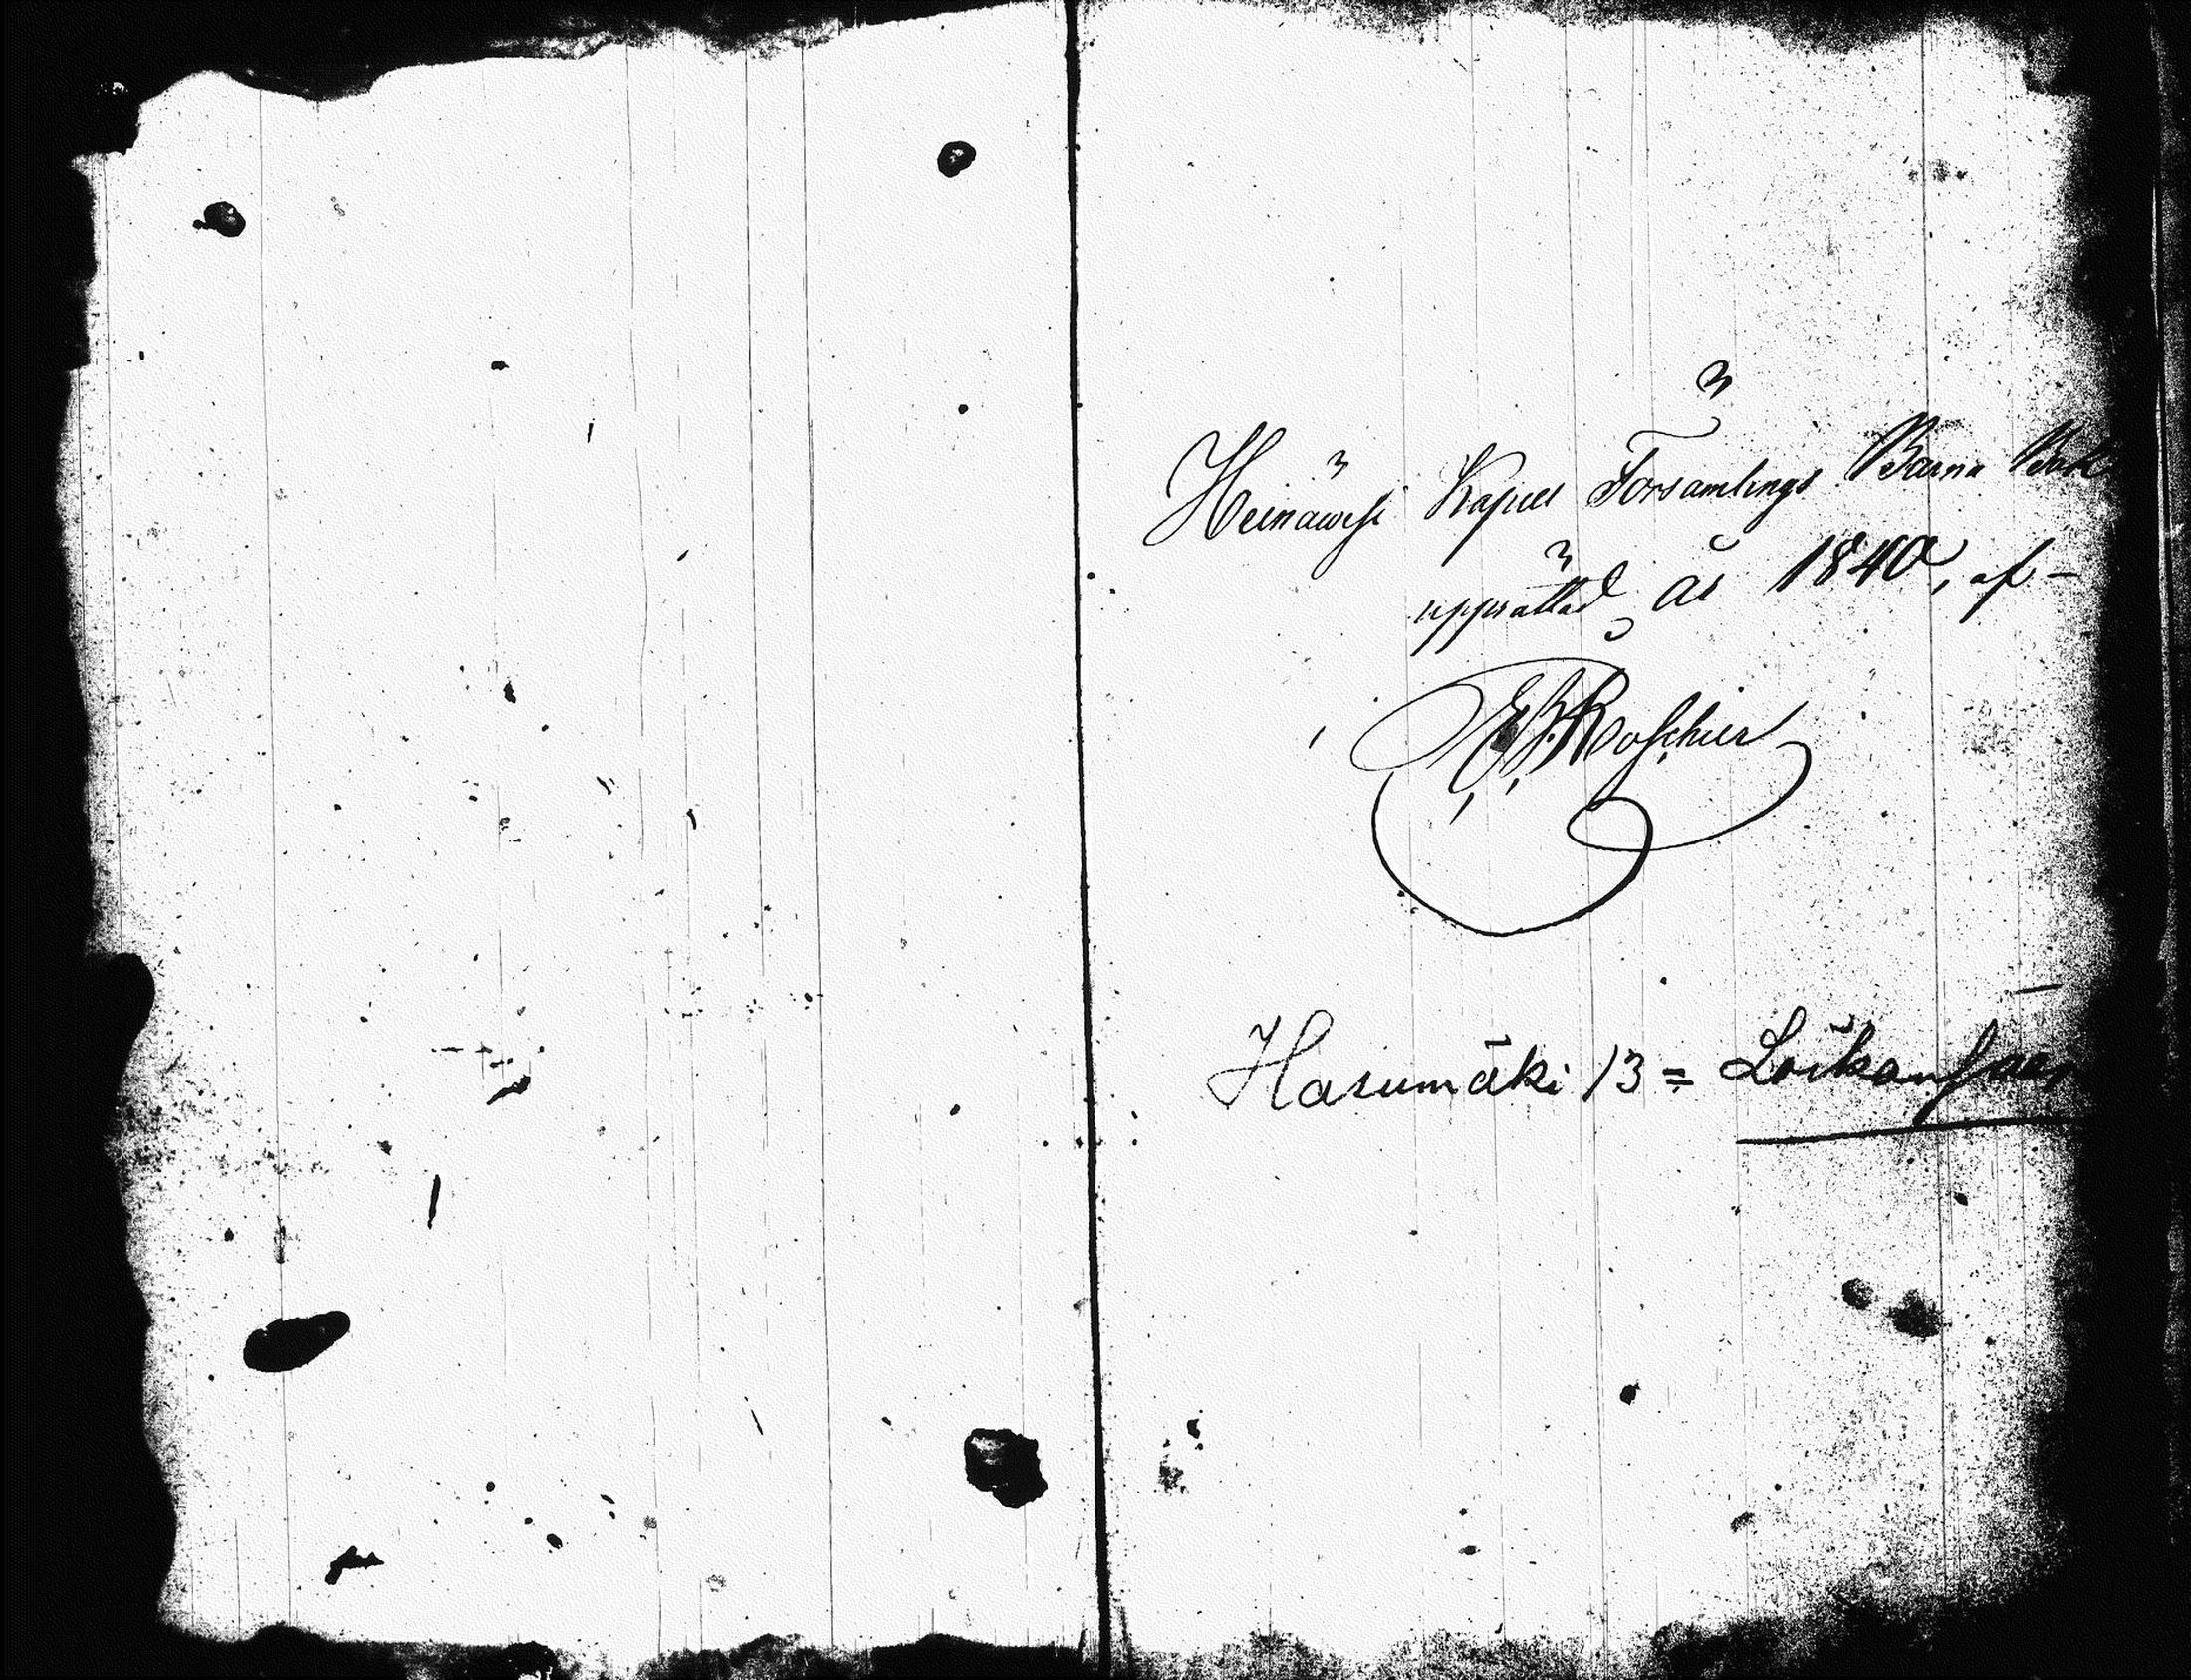 Heinäwesi Kapell Församlings Barna Bok
upprättad år 1840, af -
E. J. Roschier
Hasumäki 13 = Loikansaari